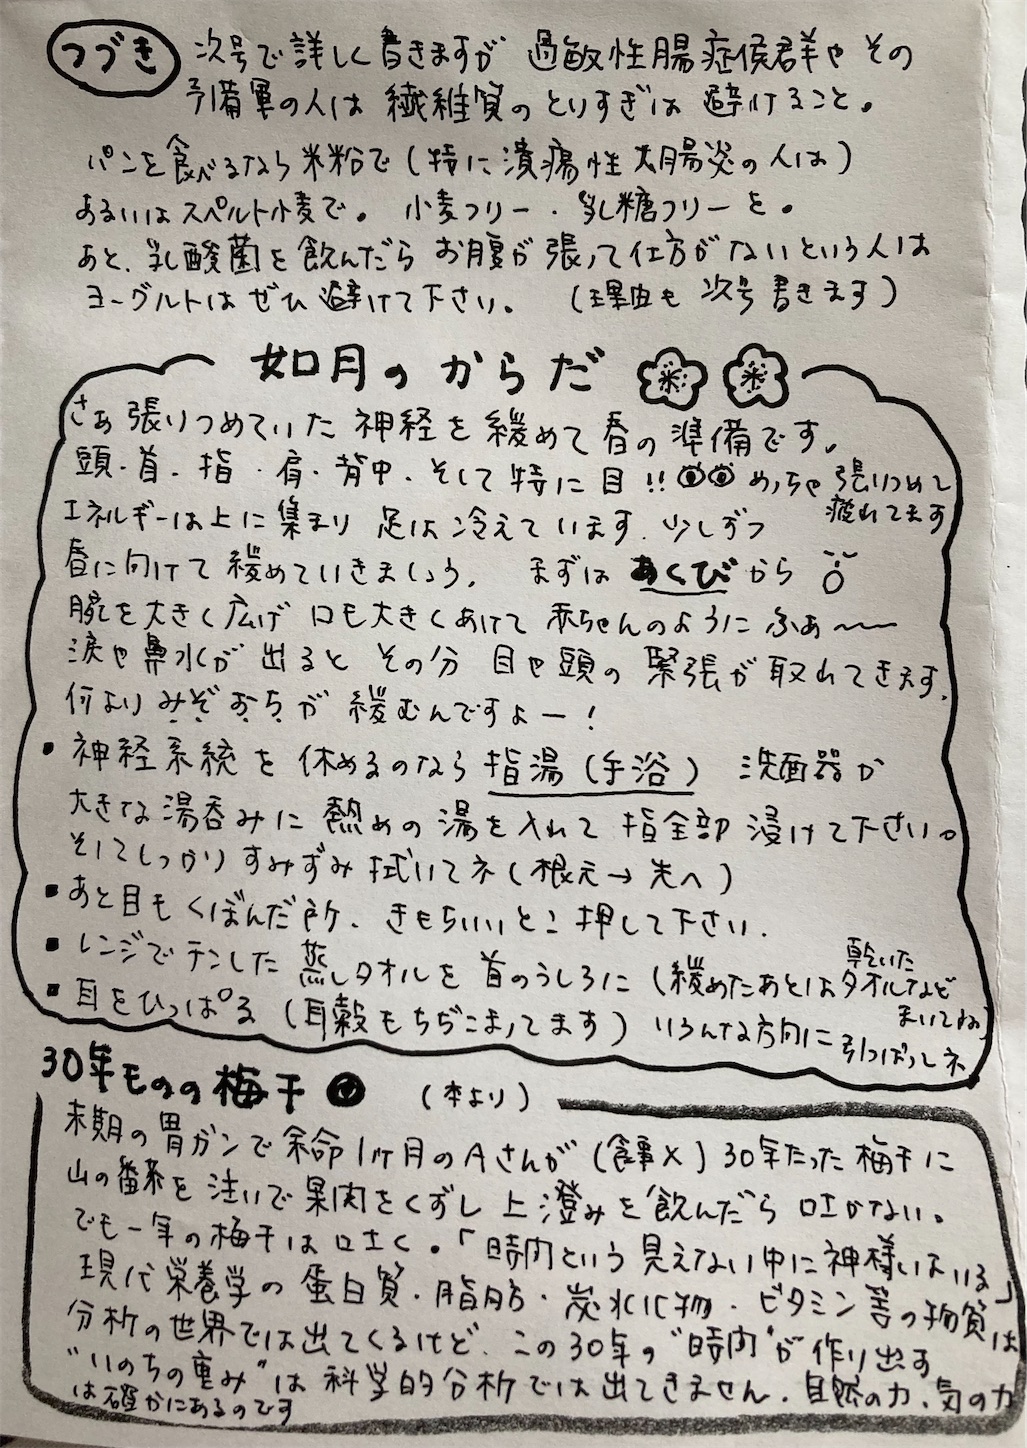 つづき 次号で詳しく書きますが 過敏性腸症侯群や その
予備軍の人は 繊維質の とりすぎは 避けること。
パンを食べるなら 米粉で (特に 潰瘍性 大腸炎の 人は)
あるいは スペルト小麦で。 小麦フリー・乳糖フリー を。
あと、乳酸菌を 飲んだら お腹が 張って 仕方が ないという人は
ヨーグルトは ぜひ 避けて下さい。 (理由も 次号 書きます)
如月の からだ
さあ 張りつめていた 神経を 緩めて 春の 準備です。
頭・首・指・肩・背中・そして 特に 目!! めっちゃ 張りつめて
疲れてます
エネルギーは上に 集まり 足は 冷えて います. 少しずつ
春に向けて 緩めていきましょう. まずは あくび から
腕を大きく広げ 口も大きくあけて 赤ちゃんのように ふぁ〜〜
涙や鼻水が 出ると その分 目や頭の 緊張が 取れてきます.
何より みぞおちが 緩むんですよー!
・神経系統を 休めるのなら 指湯 (手浴) 洗面器か
大きな 湯呑みに 熱めの 湯を 入れて 指全部 浸けて下さい。
そしてしっかり すみずみ 拭いてネ (根元→先へ)
・あと目も くぼんだ所、きもちいいとこ 押して下さい.
・レンジでチンした 蒸しタオルを 首のうしろに (緩めたあとは 乾いた
タオルなど
まいてね)
・耳をひっぱる (耳殻もちぢこまってます) いろんな方向に 引っぱってネ
30年ものの 梅干 (本より)
末期の 胃ガンで 余命1ヶ月の Aさんが (食事×) 30年たった 梅干に
山の番茶を 注いで 果肉をくずし 上澄みを 飲んだら 吐かない。
でも一年の梅干は 吐く。「時間という 見えない中に 神様はいる」
現代栄養学の 蛋白質・脂肪・炭水化物・ビタミン等の物質は
分析の世界では 出てくるけど、この30年の "時間"が 作り出す
"いのちの重み"は 科学的分析では出てきません. 自然の力、気の力
は確かにあるのです